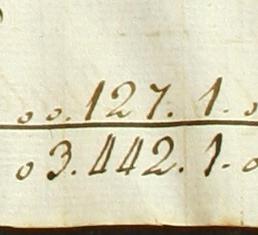 oo.127.1.o
o3.442.1.o